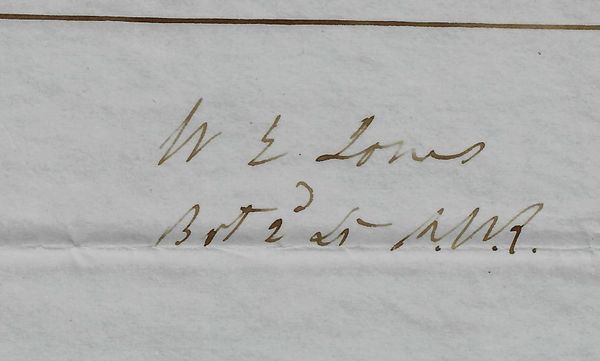 W E Jones
Bvt 2d Lt R.M.R.